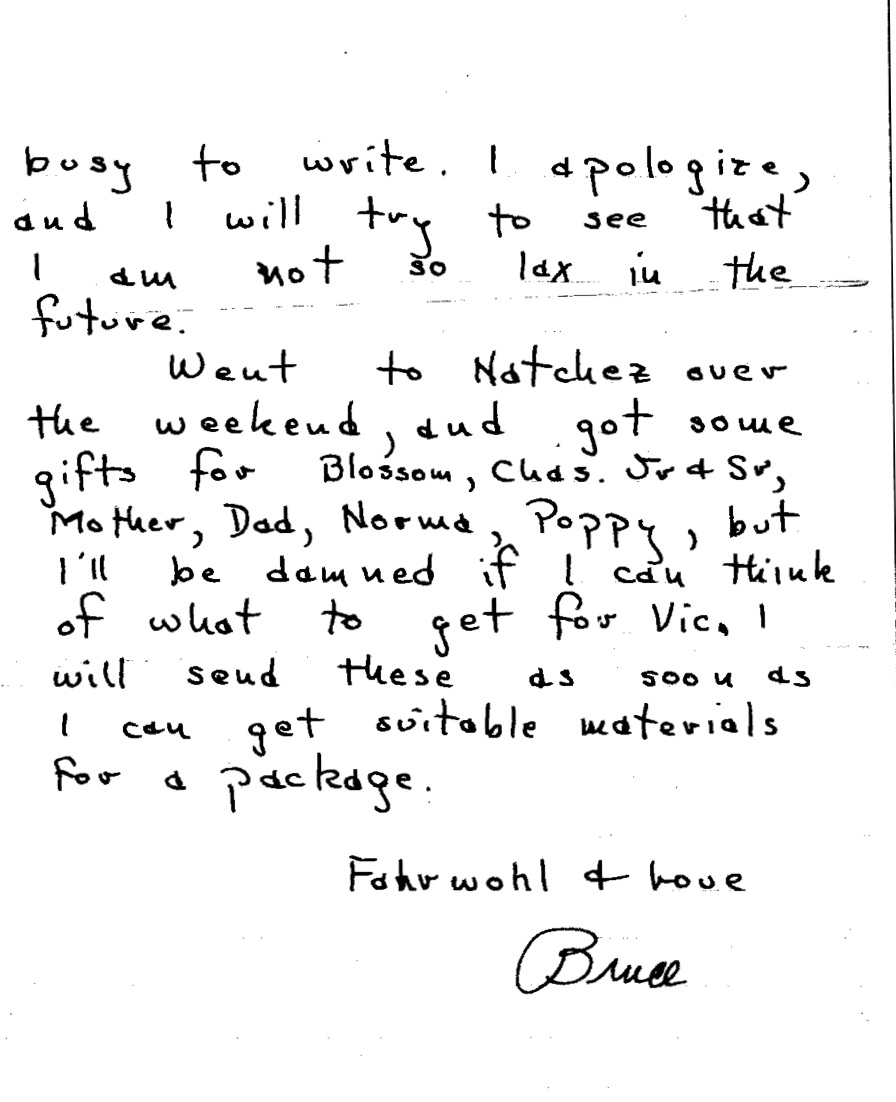 busy to write. I apologize,
and I will try to see that
I am not so lax in the
future.
Went to Natchez over
the weekend, and got some
gifts for Blossom, Chas. Jr & Sr,
Mother, Dad, Norma, Poppy, but
I'll be damned if I can think
of what to get for Vic. I
will send these as soon as
I can get suitable materials
for a package.
Fahrwohl & Love
Bruce